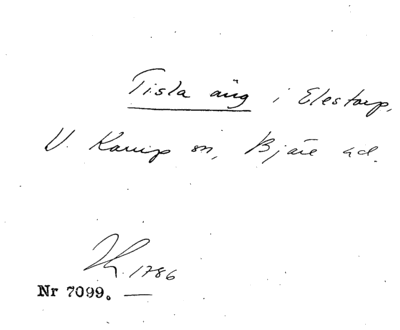 Tisla äng i Elestorp,
V. Karup sn, Bjäre hd.
Lk. 1786
Nr 7099. —